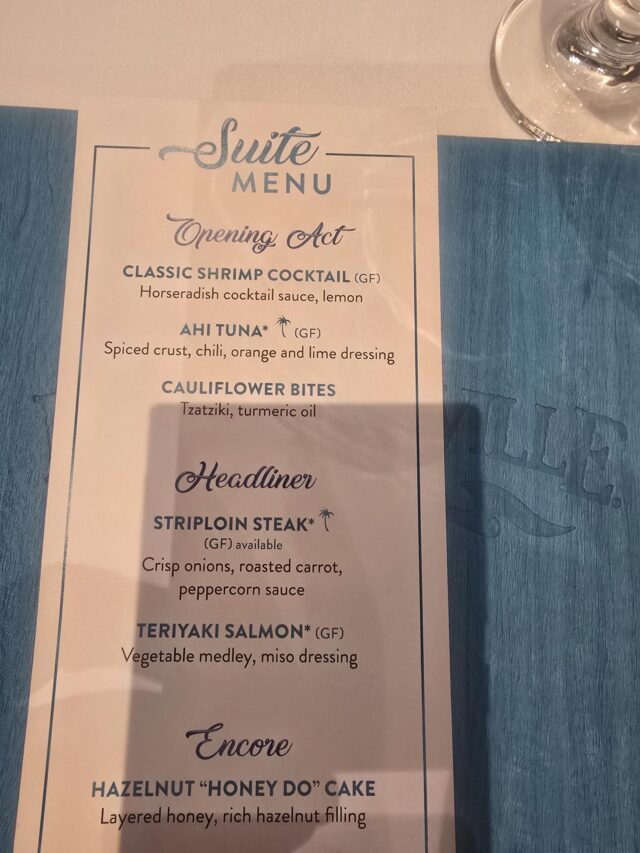 Suite
MENU
Opening Act
CLASSIC SHRIMP COCKTAIL (GF)
Horseradish cocktail sauce, lemon
AHI TUNA* (GF)
Spiced crust, chili, orange and lime dressing
CAULIFLOWER BITES
Tzatziki, turmeric oil
VILLE.
Headliner
STRIPLOIN STEAK*
(GF) available
Crisp onions, roasted carrot,
peppercorn sauce
TERIYAKI SALMON* (GF)
Vegetable medley, miso dressing
Encore
HAZELNUT “HONEY DO” CAKE
Layered honey, rich hazelnut filling